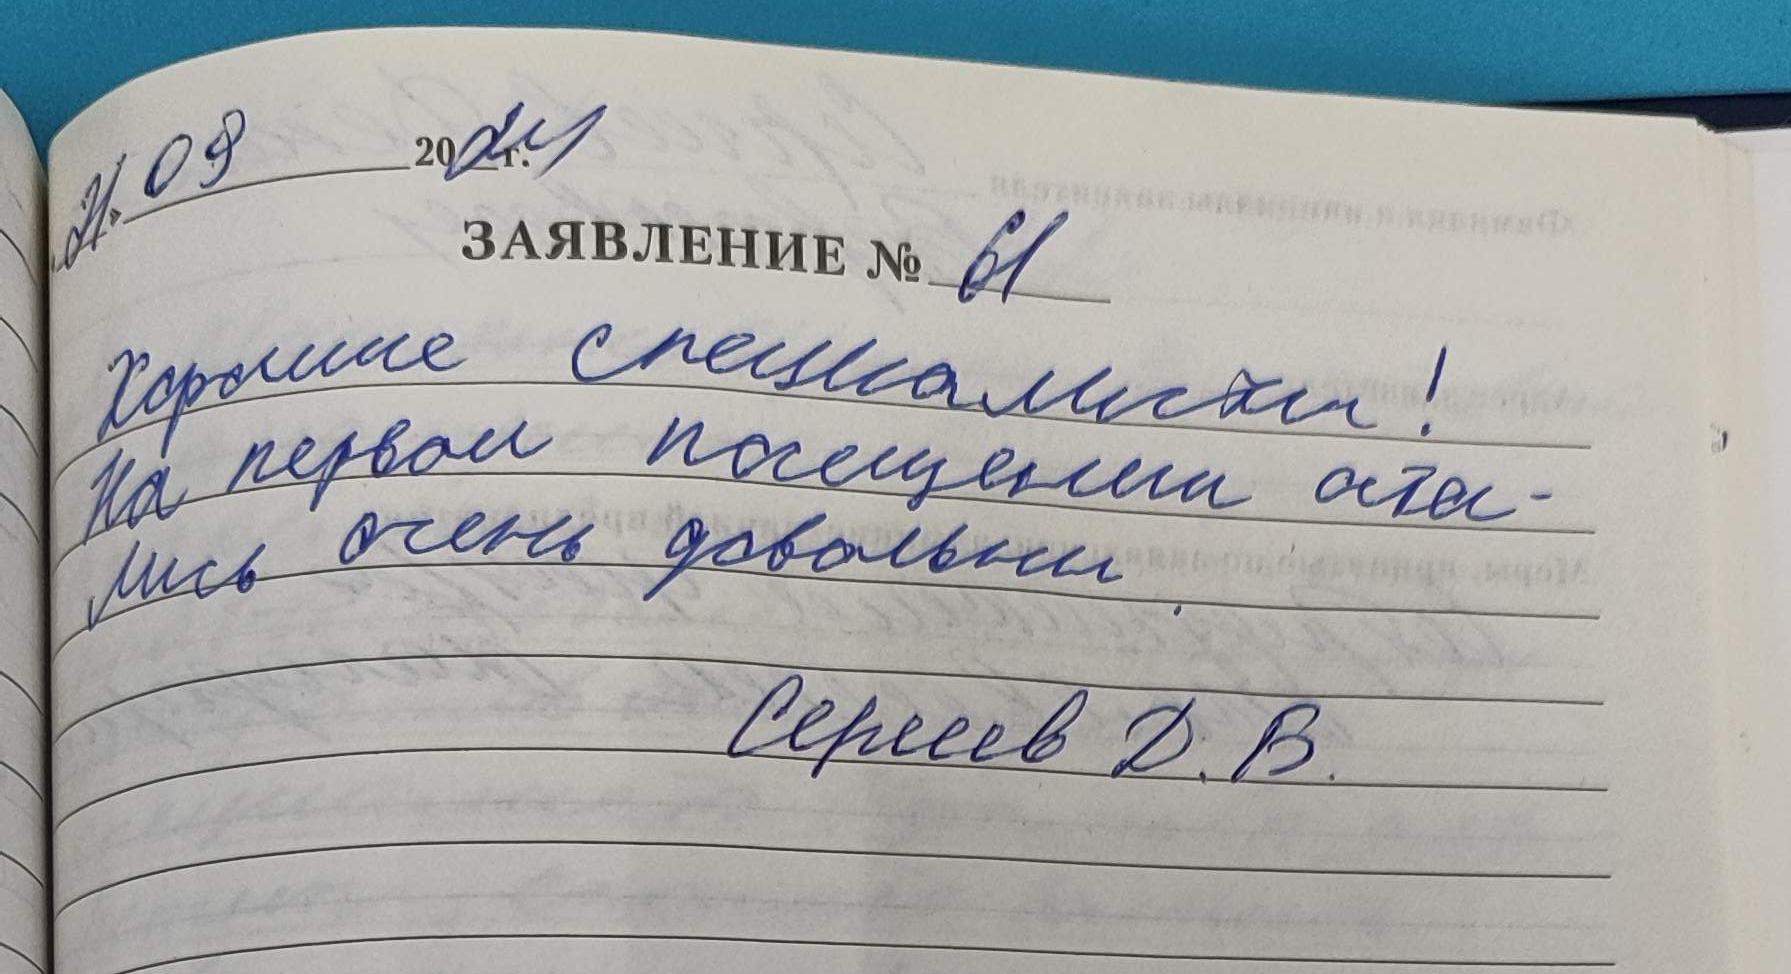 21.08 2024 г.
ЗАЯВЛЕНИЕ № 61
Хорошие специалисты!
На первом посещении оста-
лись очень довольны.
Сергеев Д. В.